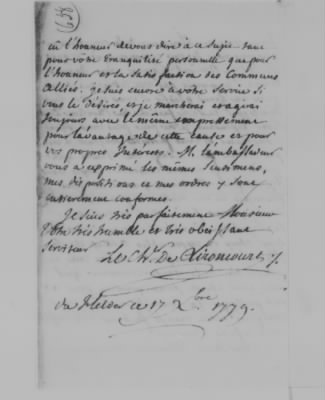 (658)
eû l'honneur de vous dire à ce sujet tant
pour votre tranquilité personnelle que pour
l'honneur et la satisfaction des Communs
Alliés. je suis encore à votre service si
vous le désirés, et je marcherai et agirai
toujours avec le même empressement
pour l'avantage de cette cause et pour
vos propres Interets. M. l'ambassadeur
vous a exprimé les mêmes sentimens,
mes dispositions et mes ordres y sont
entierement conformes.
Je suis très parfaitement Monsieur
Votre très humble et très obeissant
Serviteur
Le Chr. De Lironcourt
du Helder ce 17 Xbre 1779.